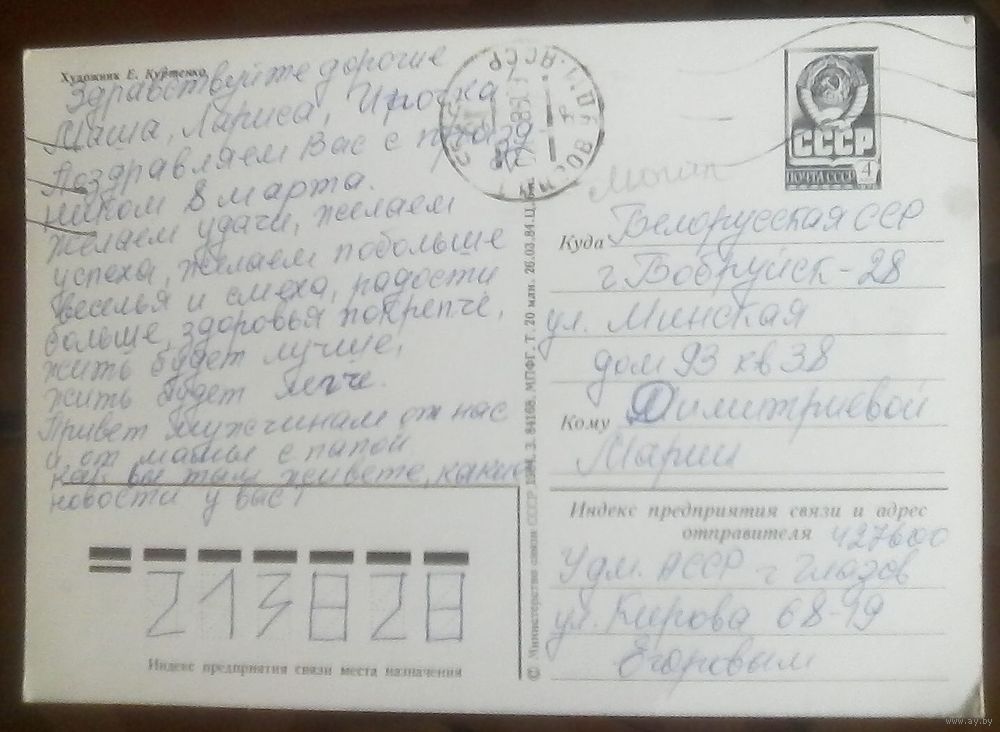 Художник Е. Куртенко
Здравствуйте дорогие
Маша, Лариса, Ирочка
Поздравляем Вас с празд-
ником 8 марта.
Желаем удачи, желаем
успеха, желаем побольше
веселья и смеха, радости
больше, здоровья покрепче,
жить будет лучше,
жить будет легче.
Привет мужчинам от нас
и от мамы с папой
как вы там живете, какие
новости у вас?
213828
Индекс предприятия связи места назначения
© Министерство связи СССР 1984. З. 84168. МПФГ. Т. 20 млн. 26.03.84 Ц.
СССР
ПОЧТА СССР 4
Куда Белорусская ССР
г Бобруйск-28
ул. Минская
дом 93 кв 38
Кому Димитриевой
Марии
Индекс предприятия связи и адрес
отправителя 427600
Удм. АССР г Глазов
ул. Кирова 68-49
Егоровым
www.ay.by